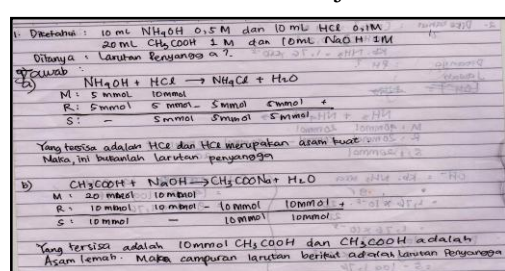 1. Diketahui : 10 mL NH4OH 0,5 M dan 10 mL HCl 0,1M
20 mL CH3COOH 1 M dan 10mL NaOH 1M
Ditanya : Larutan Penyangga?
Jawab :
a) NH4OH + HCl → NH4Cl + H2O
M : 5 mmol 10mmol
R : 5mmol 5 mmol - 5mmol 5mmol +
S : - 5mmol 5mmol 5mmol
Yang tersisa adalah HCl dan HCl merupakan asam kuat
Maka, ini bukanlah larutan penyangga
b) CH3COOH + NaOH → CH3COONa + H2O
M : 20 mmol 10mmol
R : 10 mmol 10mmol - 10mmol 10mmol +
S : 10 mmol - 10mmol 10mmol
Yang tersisa adalah 10mmol CH3COOH dan CH3COOH adalah
Asam lemah. Maka campuran larutan berikut adalah Larutan Penyangga